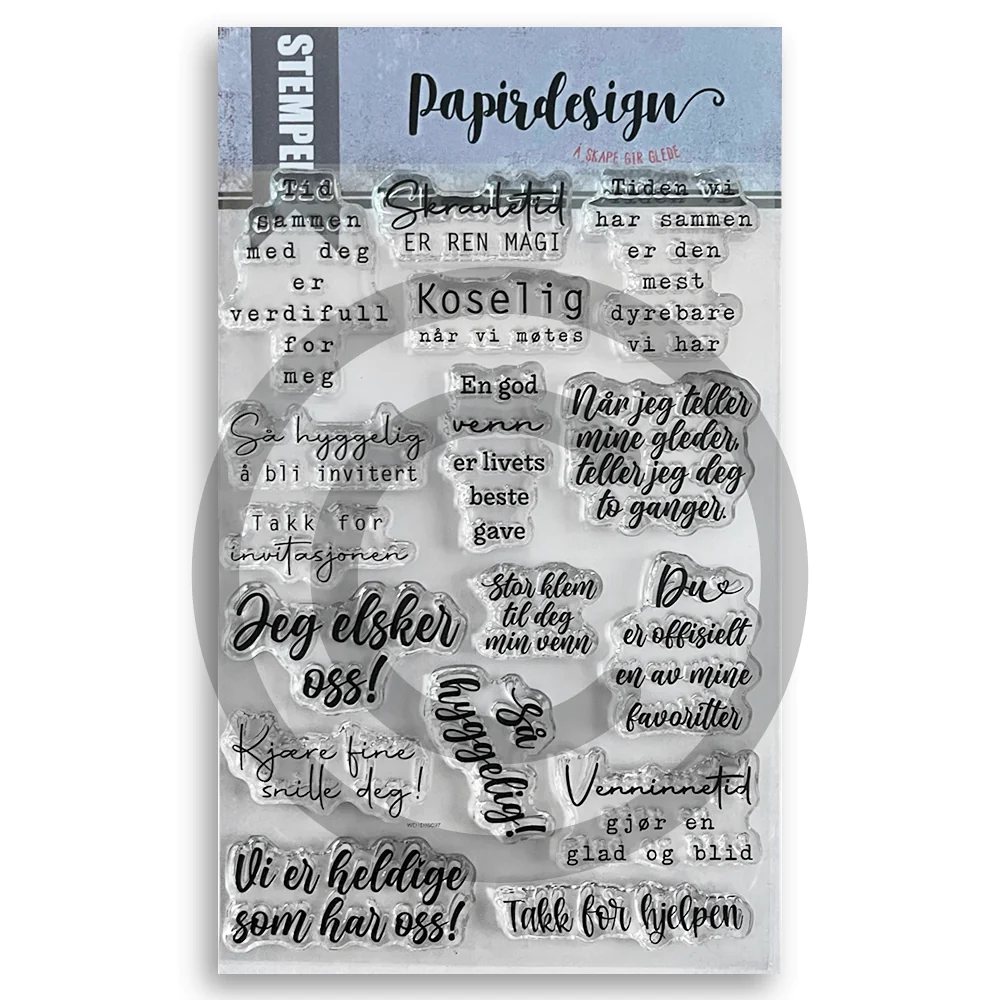 STEMPEL
Papirdesign
Å SKAPE GIR GLEDE
Tid
sammen
med deg
er
verdifull
for
meg
Skravletid
ER REN MAGI
Tiden vi
har sammen
er den
mest
dyrebare
vi har
Koselig
når vi møtes
En god
venn
er livets
beste
gave
Når jeg teller
mine gleder,
teller jeg deg
to ganger.
Så hyggelig
å bli invitert
Takk for
invitasjonen
Jeg elsker
oss!
Stor klem
til deg
min venn
Du
er offisielt
en av mine
favoritter
Så
hyggelig!
Kjære fine
snille deg!
Venninnetid
gjør en
glad og blid
Vi er heldige
som har oss!
Takk for hjelpen